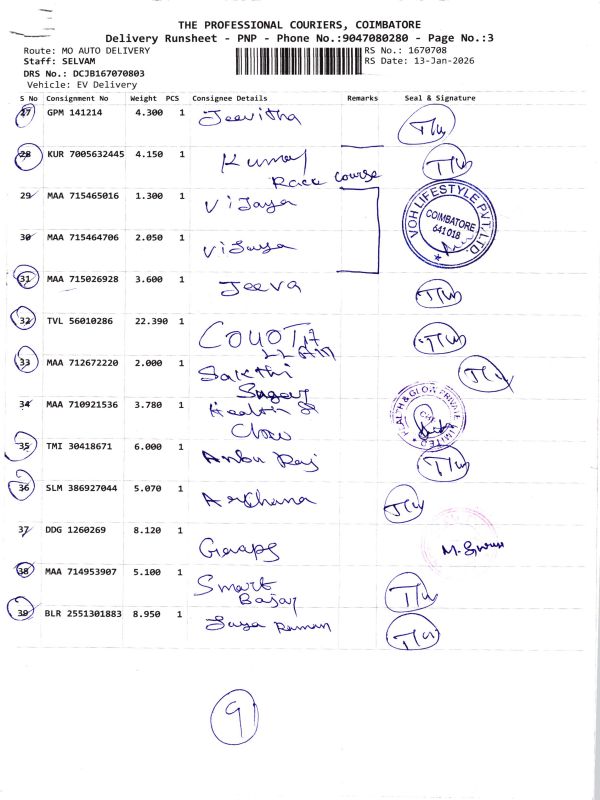 THE PROFESSIONAL COURIERS, COIMBATORE
Delivery Runsheet - PNP - Phone No.:9047080280 - Page No.:3
Route: MO AUTO DELIVERY
RS No.: 1670708
Staff: SELVAM
RS Date: 13-Jan-2026
DRS No.: DCJB167070803
Vehicle: EV Delivery
S No Consignment No Weight PCS Consignee Details Remarks Seal & Signature
27 GPM 141214 4.300 1 Jeevitha
28 KUR 7005632445 4.150 1 Kumar
Race course
29 MAA 715465016 1.300 1 Vijaya
VOH LIFESTYLE PVT. LTD.
COIMBATORE
641 018
30 MAA 715464706 2.050 1 Vijaya
31 MAA 715026928 3.600 1 Jeeva
32 TVL 56010286 22.390 1
33 MAA 712672220 2.000 1 Sakthi
Sugar
34 MAA 710921536 3.780 1 Health &
Glow
HEALTH & GLOW PRIVATE LIMITED
35 TMI 30418671 6.000 1 Anbu Raj
36 SLM 386927044 5.070 1 Archana
37 DDG 1260269 8.120 1
38 MAA 714953907 5.100 1 Smart
Bajaj
39 BLR 2551301883 8.950 1 Jaya Raman
9